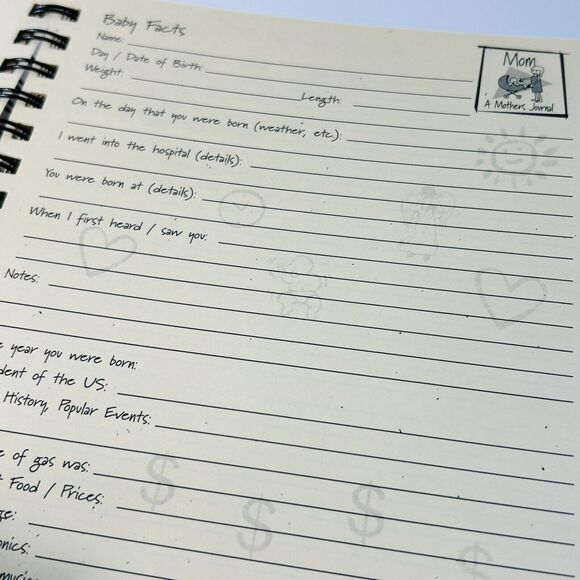 Baby Facts
Name:
Day / Date of Birth:
Weight:
Length:
Mom
A Mothers Journal
On the day that you were born (weather, etc.):
I went into the hospital (details):
You were born at (details):
When I first heard / saw you:
Notes:
year you were born:
of the US:
History, Popular Events:
of gas was:
Food / Prices:
$ $ $ $